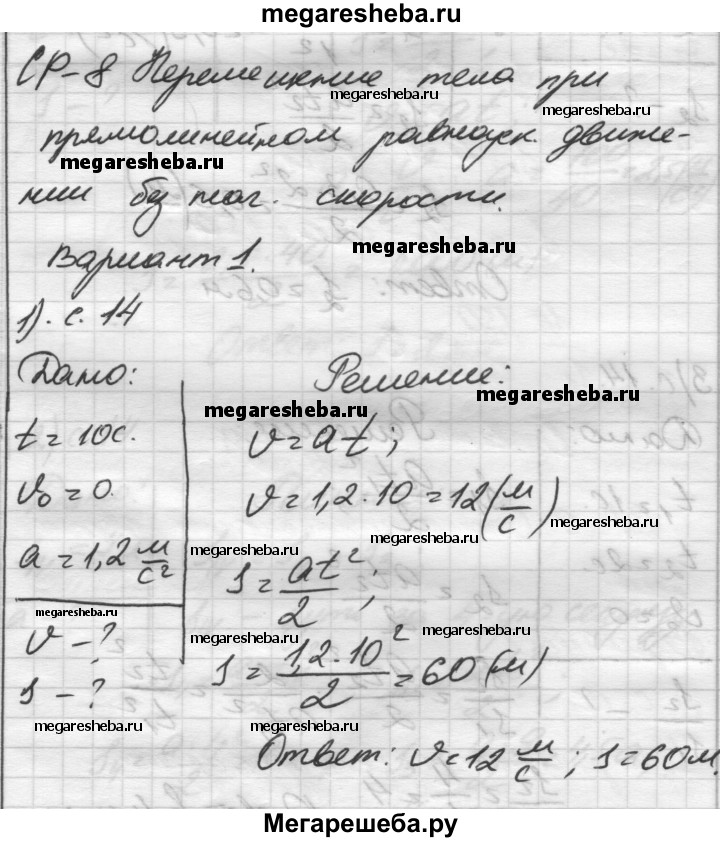 megaresheba.ru
СР-8 Перемещение тела при
megaresheba.ru
megaresheba.ru
прямолинейном равноуск. движе-
megaresheba.ru
нии без нач. скорости.
megaresheba.ru
Вариант 1.
1). с. 14
Дано: Решение:
megaresheba.ru
megaresheba.ru
t = 10с. v = at;
v₀ = 0. v = 1,2 · 10 = 12 (м/с)
megaresheba.ru
megaresheba.ru
a = 1,2 м/с² s = at²/2;
megaresheba.ru
megaresheba.ru
megaresheba.ru
megaresheba.ru
megaresheba.ru
v - ? s = 1,2 · 10²/2 = 60 (м)
s - ?
megaresheba.ru
megaresheba.ru
Ответ: v = 12 м/с; s = 60м.
Мегарешеба.ру